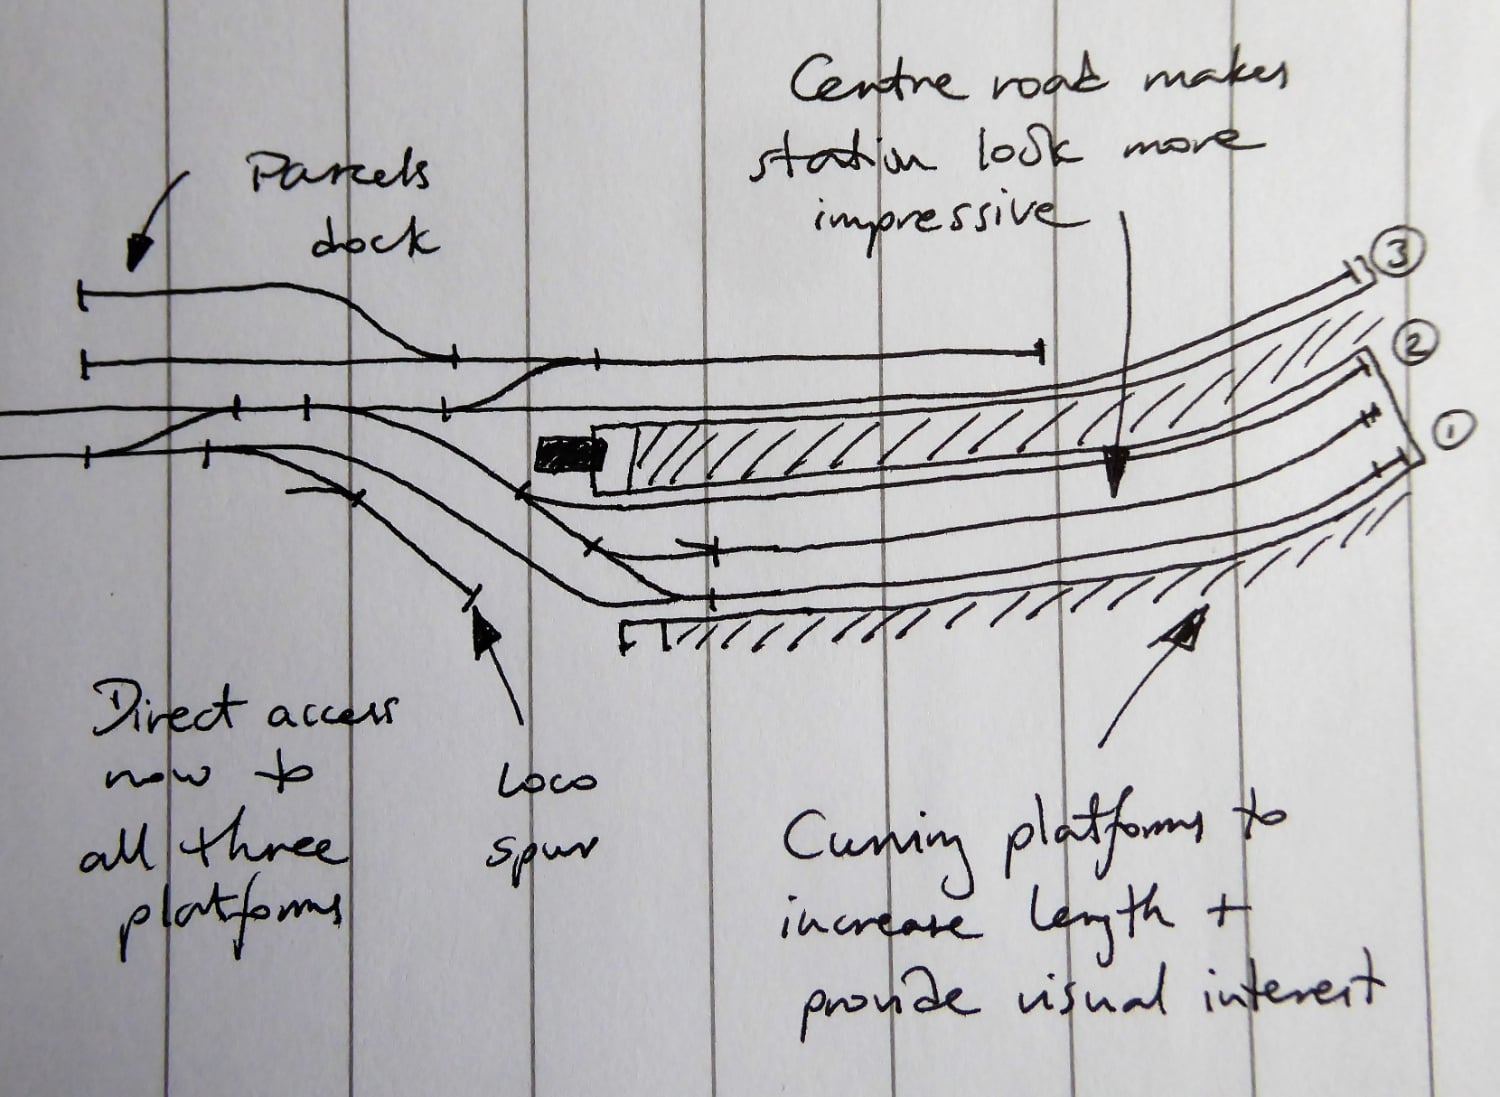 Centre road makes
station look more
impressive
Parcels
dock
3
2
1
Direct access
now to
all three
platforms
Loco
spur
Curving platforms to
increase length +
provide visual interest